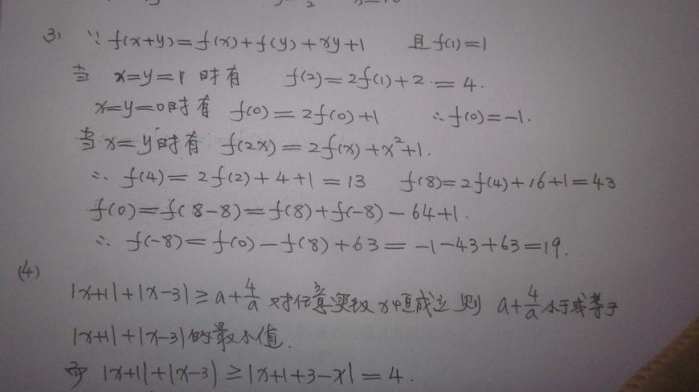 3、∵ f(x+y)=f(x)+f(y)+xy+1 且f(1)=1
当 x=y=1 时有 f(2)=2f(1)+2=4.
x=y=0时有 f(0)=2f(0)+1 ∴f(0)=-1.
当x=y时有 f(2x)=2f(x)+x²+1.
∴ f(4)=2f(2)+4+1=13 f(8)=2f(4)+16+1=43
f(0)=f(8-8)=f(8)+f(-8)-64+1.
∴ f(-8)=f(0)-f(8)+63=-1-43+63=19.
(4)
|x+1|+|x-3|≥a+4/a 对任意实数x恒成立 则 a+4/a小于或等于
|x+1|+|x-3|的最小值.
而 |x+1|+|x-3|≥|x+1+3-x|=4.